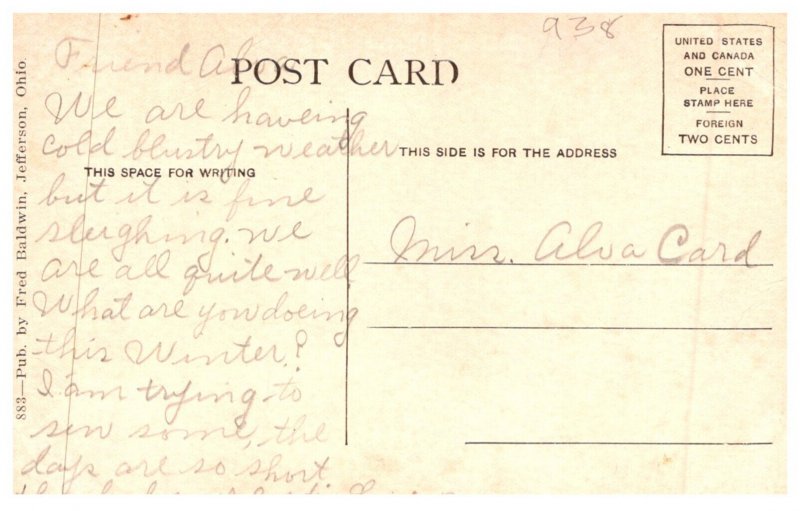 938
Friend Alva
POST CARD
UNITED STATES
AND CANADA
ONE CENT
PLACE
STAMP HERE
FOREIGN
TWO CENTS
THIS SPACE FOR WRITING
THIS SIDE IS FOR THE ADDRESS
We are haveing
cold blustry weather
but it is fine
sleighing. We
are all quite well
What are you doeing
this Winter?
I am trying to
sew some, the
days are so short.
Miss. Alva Card
883—Pub. by Fred Baldwin, Jefferson, Ohio.